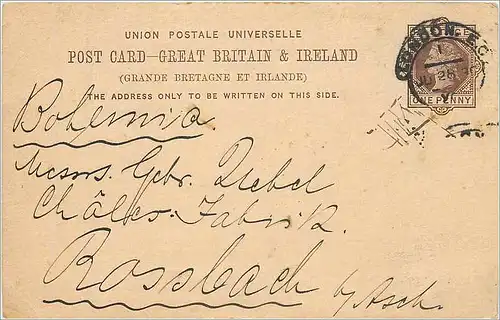 UNION POSTALE UNIVERSELLE
POST CARD—GREAT BRITAIN & IRELAND
(GRANDE BRETAGNE ET IRLANDE)
THE ADDRESS ONLY TO BE WRITTEN ON THIS SIDE.
LONDON E.C.
ONE PENNY
Bohemia
Messrs. Gebr.
Fabrik.
Rossbach b/Asch.